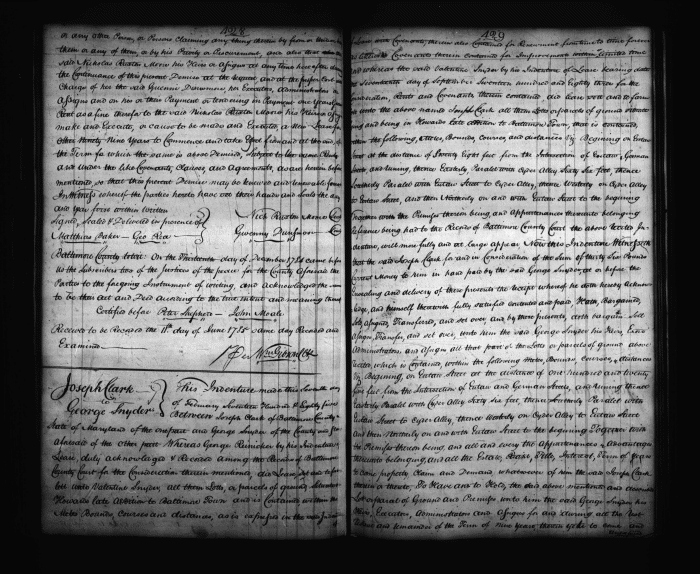 428
or any other Person, or Persons claiming any thing therein by from or under
them or any of them, or by his Privity or Procurement, and also that the
said Nicholas Ruxton Moore his Heirs or Assigns at any time hereafter during
the Continuance of this present Demise at the request and at the proper Cost
Charge of her the said Gwenny Dunnmon her Executors, Administrators or
Assigns and on her or their Payment or tendering in Payment one Years
Rent as a fine therefor to the said Nicholas Ruxton Moore his Heirs or Assigns
make and Execute, or cause to be made and Executed, a New Lease for
other Ninety Nine Years to Commence and take Effect from and at the end of
the Term for which the same is above Demised, Subject to the same Rents
and under the like Covenants, Clauses, and Agreements, as are herein before
mentioned so that this present Demise may be renewed and renewable forever
In Witness whereof the parties hereto have set their hands and Seals the day
and Year first within Written
Signed, Sealed & Delivered in presence of } Nick Ruxton Moore
Matthias Baker — Geo Rice Gwenny
Baltimore County to wit: On the Thirteenth day of December 1784 came before
the Subscribers two of the Justices of the peace for the County aforesaid the
Parties to the foregoing Instrument of writing, and acknowledged the
to be their Act and Deed According to the true intent and meaning thereof
Certified before Peter Shepherd — John Moale
Received to be Recorded the 11th day of June 1785 same day Recorded and
Examined
Per Wm Gibson Clk
Joseph Clark
George Snyder
This Indenture made this Seventh day
of February Seventeen Hundred & Eighty five
Between Joseph Clark of Baltimore County
State of Maryland of the one part and George Snyder of the County and
aforesaid of the other part Whereas George Reinicker by his Indenture
Lease, duly acknowledged & Recorded among the Records of Baltimore
County Court for the Consideration therein mentioned, did Lease and
unto Valentine Snyder, all them Lotts, or parcels of ground situate
Howards late Addition to Baltimore Town and is Contained within the
Metes Bounds, Courses and distances, as is expressed in the said Indenture
429
Covenants, therein also Contained for
Covenants therein contained for Improvement within limited time
and whereas the said Valentine Snyder by his Indenture of Lease bearing date
the day of September Seventeen hundred and Eighty three for the
Consideration Rents and Covenants therein contained did lease
unto the above named Joseph Clark all them Lotts or parcels of ground situate
lying and being in Howards Late addition to Baltimore Town, that is contained
within the following, Metes, Bounds, Courses, and distances Viz Beginning on Eutaw
Street at the distance of Seventy Eight feet from the Intersection of Eutaw & German
Streets, and running thence Easterly Paralel with Cyder Alley Sixty six feet, thence
Northerly Paralel with Eutaw Street to Cyder Alley, thence Westerly on Cyder Alley
to Eutaw Street, and then Southerly on and with Eutaw Street to the beginning
Together with the Premises therein being, and Appurtenances thereunto belonging
Reference being had to the Records of Baltimore County Court the above recited
Indenture, will more fully and at large appear Now this Indenture Witnesseth
that the said Joseph Clark for and in Consideration of the Sum of thirty five Pounds
Current Money to him in hand paid by the said George Snyder, at or before the
Ensealing and delivery of these presents the receipt whereof he doth hereby acknow-
ledge, and himself therewith fully satisfied contented and paid, Hath, Bargained,
Sold, Assigned, Transferred, and set over, and by these presents, doth bargain Sell
Assign Transfer, and set over, unto him the said George Snyder his Heirs, Exors
Administrators, and Assigns all that part of the Lotts or parcels of ground above
recited, which is contained, within the following Metes, Bounds, courses, & distances
Viz Beginning, on Eutaw Street at the distance of one hundred and twenty
five feet from the Intersection of Eutaw and German Streets, and running thence
Easterly Paralel with Cyder Alley Sixty six feet, thence Northerly Paralel with
Eutaw Street to Cyder Alley, thence Westerly on Cyder Alley to Eutaw Street
and then Southerly on and with Eutaw Street to the beginning Together with
the Premises therein being, and all and every the Appurtenances, & Advantages
thereunto belonging, and all the Estate, Right, Title, Interest, Term of years
to come property Claim and Demand, whatsoever of him the said Joseph Clark
therein or thereto, To Have and to Hold, the said above mentioned and described
Lott or parcel of Ground and Premises unto him the said George Snyder his
Heirs, Executors, Administrators and Assigns for and during all the Rest
Residue and remainder of the Term of Nine Years, therein yet to come and